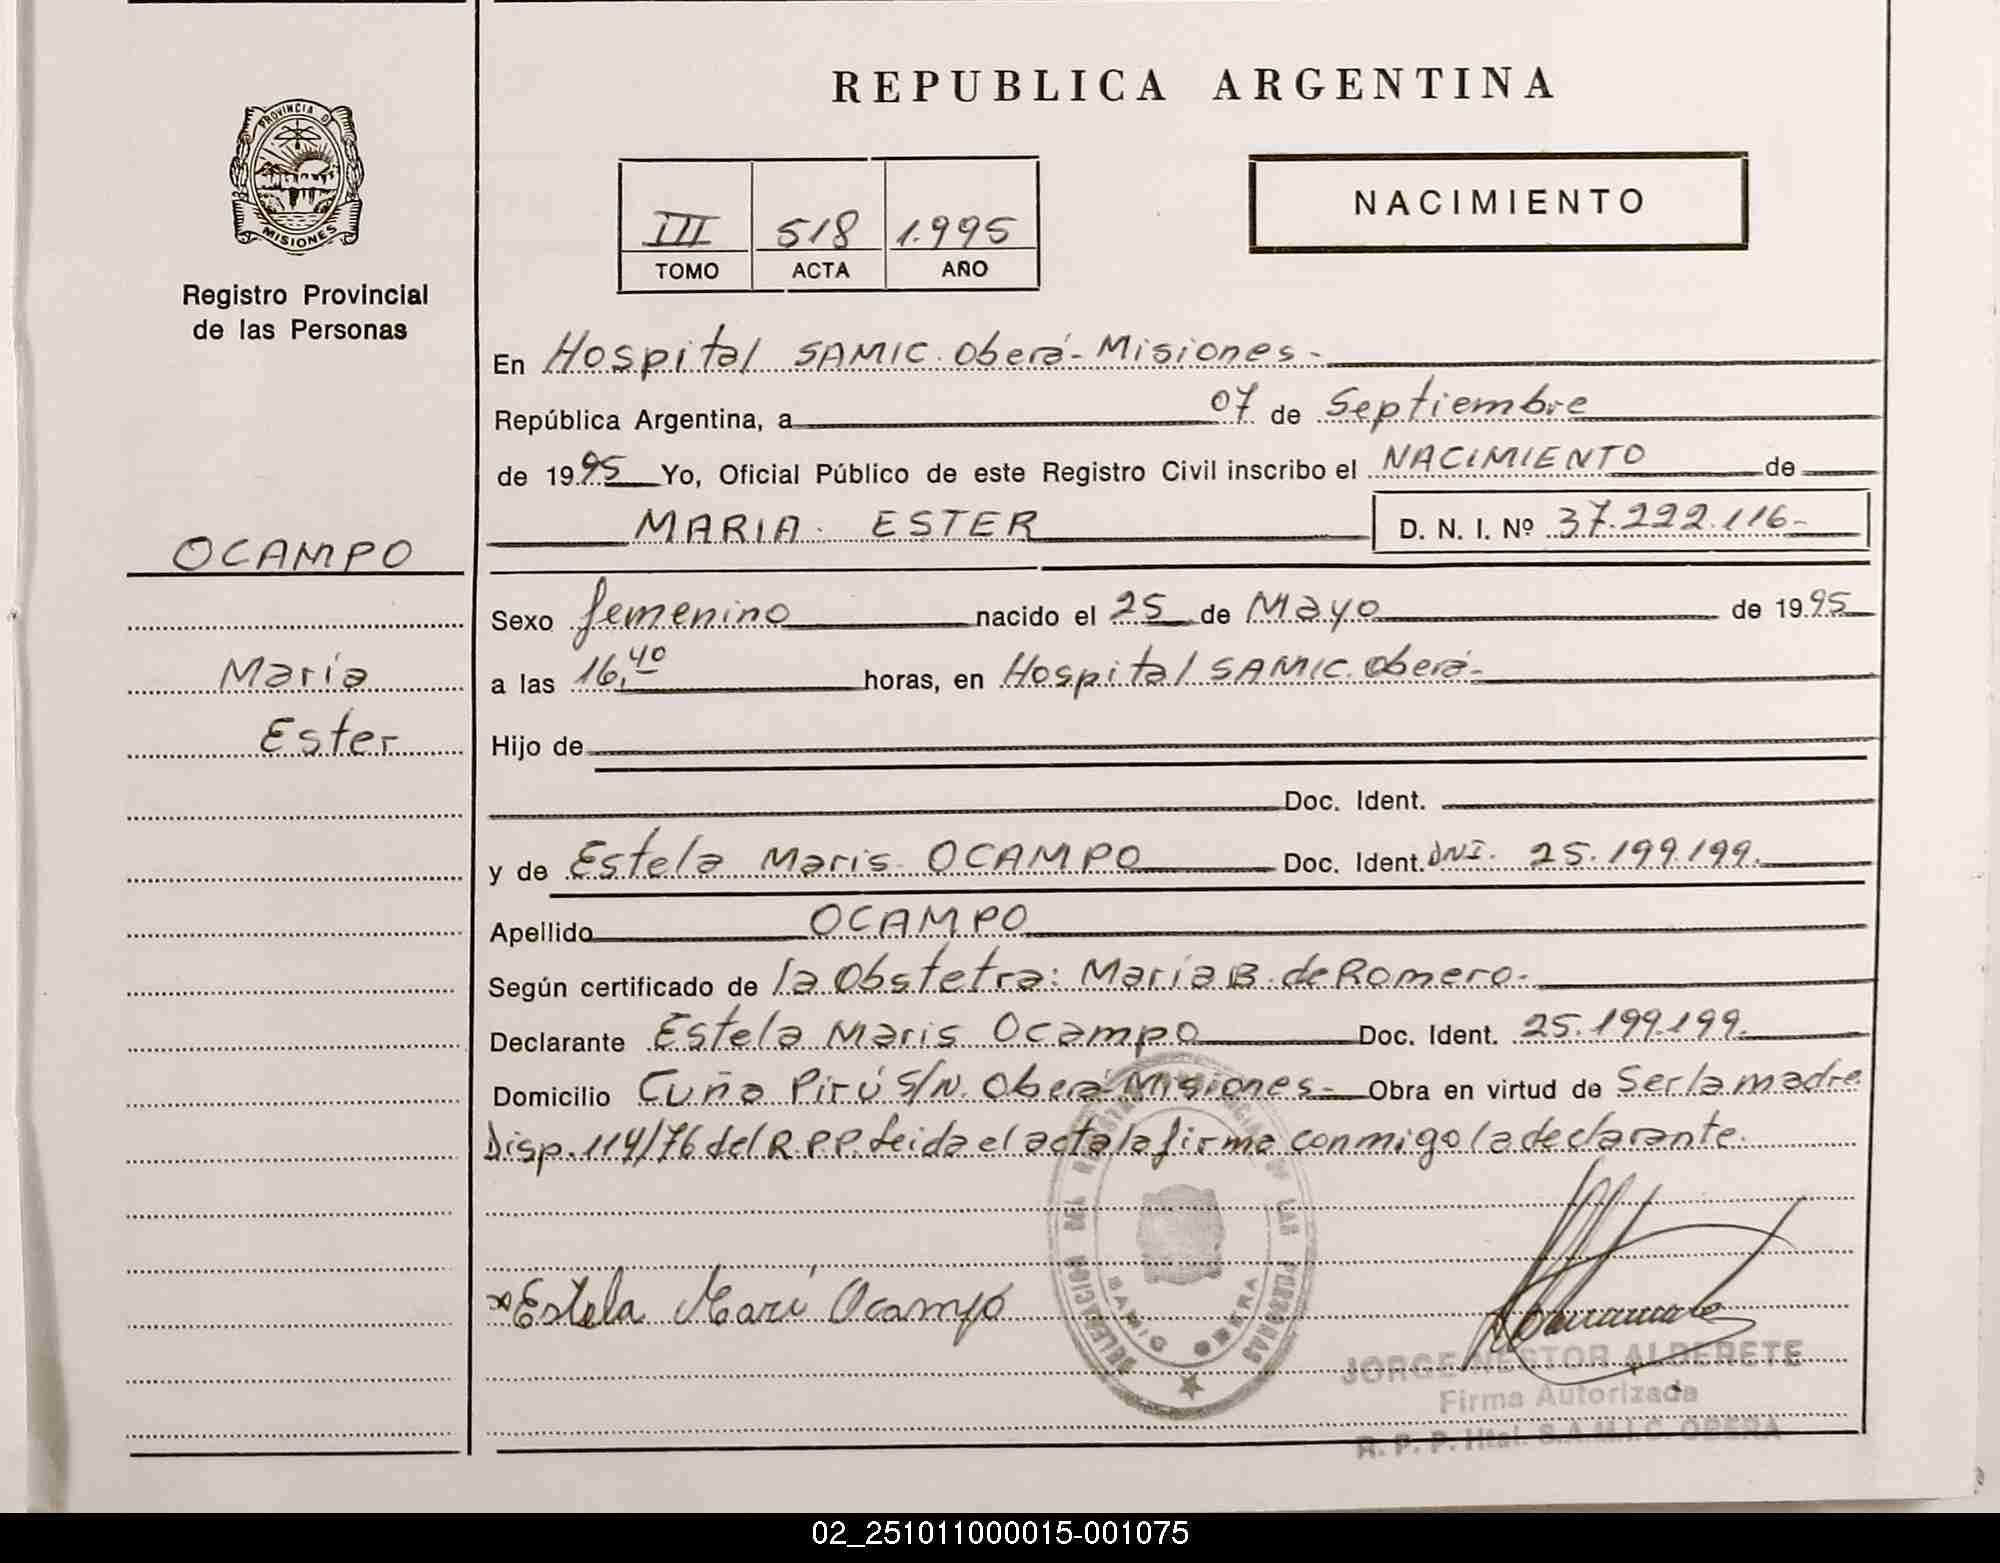 PROVINCIA D
MISIONES
Registro Provincial
de las Personas
REPUBLICA ARGENTINA
III 518 1.995
TOMO ACTA AÑO
NACIMIENTO
En Hospital SAMIC. Oberá - Misiones -
República Argentina, a 07 de Septiembre
de 1995 Yo, Oficial Público de este Registro Civil inscribo el NACIMIENTO de
MARIA ESTER D. N. I. Nº 37.222.116-
OCAMPO
María
Ester
Sexo femenino nacido el 25 de Mayo de 1995
a las 16,40 horas, en Hospital SAMIC. Oberá-
Hijo de
Doc. Ident.
y de Estela Maris OCAMPO Doc. Ident. DNI. 25.199.199.
Apellido OCAMPO
Según certificado de la Obstetra: María B. de Romero-
Declarante Estela Maris Ocampo Doc. Ident. 25.199.199.
Domicilio Cuña Pirú S/N. Oberá Misiones- Obra en virtud de Ser la madre
Disp. 114/76 del R.P.P. Leida el acta la firma conmigo la declarante.
Estela Mari Ocampo
DELEGACION DEL REGISTRO PROVINCIAL DE LAS PERSONAS
SAMIC OBERA
JORGE NESTOR ALDERETE
Firma Autorizada
R. P. P. Htal. S.A.M.I.C. OBERA
02_251011000015-001075